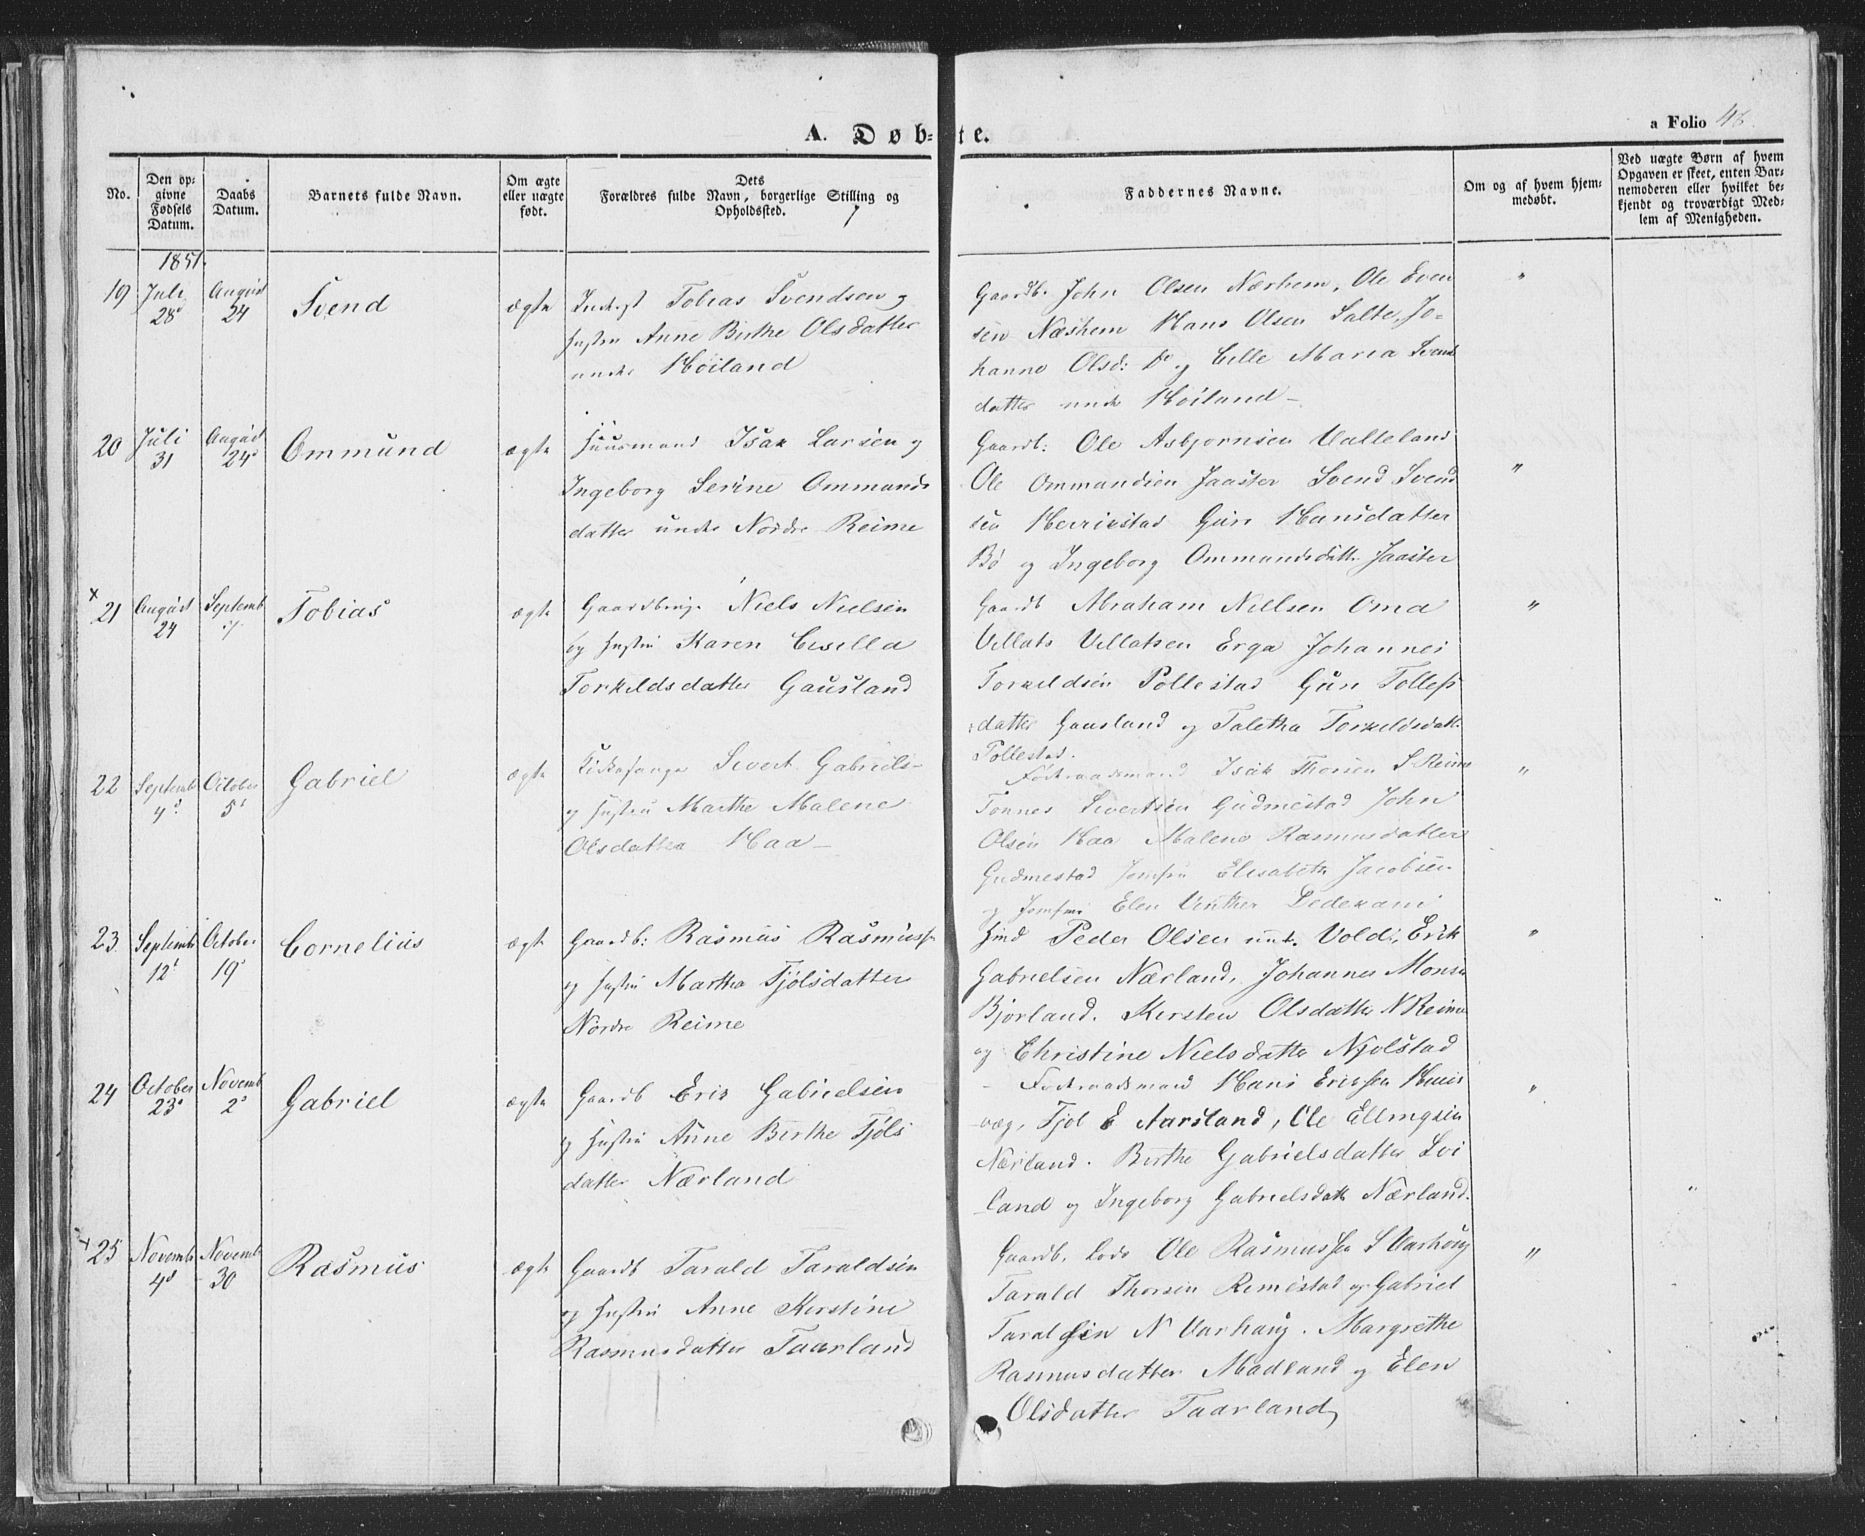 A. Døbte.
a Folio 48.
No.
Den opgivne Fødsels Datum.
Daabs Datum.
Barnets fulde Navn.
Om ægte eller uægte født.
Dets Forældres fulde Navn, borgerlige Stilling og Opholdssted.
Faddernes Navne.
Om og af hvem hjemmedøbt.
Ved uægte Børn af hvem Opgaven er skeet, enten Barnemoderen eller hvilket bekjendt og troværdigt Medlem af Menigheden.
1851.
19 Juli 28 August 24 Svend ægte
Inderst Tobias Svendsen og
Hustru Anne Birthe Olsdatter
under Höiland
Gaardb. John Olsen Nærhem, Ole Even
sen Næshem Hans Olsen Salte, Jo-
hanne Olsd: do og Cille Maria Svends
datter unde Höiland -
"
20 Juli 31 August 24 Ommund ægte
Huusmand Isak Larsen og
Ingeborg Serine Ommunds
datter under Nordre Reime
Gaardb: Ole Asbjornsen Valleland
Ole Ommundsen Jaaster Svend Svend
sen Herrestad Guri Hansdatter
Bö og Ingeborg Ommundsdatt. Jaaster
"
x 21 August 24 Septemb 7 Tobias ægte
Gaardbrug. Niels Nielsen
og Hustru Karen Cicilla
Torkeldsdatter Gausland
Gaardb Abraham Nielsen Oma
Villats Villatsen Erga Johannes
Torkeldsen Pollestad Guri Tollefs
datter Gausland og Taletha Torkeldsdatt.
Pollestad.
"
22 Septemb 4 October 5 Gabriel ægte
Kirkesanger Sivert Gabriels-
og Hustru Marthe Malene
Olsdatter Haa -
Forligelsesmand Isak Thorsen S Reime
Tönnes Sivertsen Gudmestad John
Olsen Haa Malene Rasmusdatter
Gudmestad Jomfru Elisabeth Jacobsen
og Jomfru Elen Vinther Dedekam
"
23 Septemb 12 October 19 Cornelius ægte
Gaardb: Rasmus Rasmuss.
og Hustru Martha Tjölsdatter
Nördre Reime
Huusmd Peder Olsen unt. Vold, Erik
Gabrielsen Nærland, Johannes Monsen
Bjorland. Kirsten Olsdatter N Reime
og Christine Nielsdatter Njolstad
"
24 October 23 Novemb 2 Gabriel ægte
Gaardb Erik Gabrielsen
og Hustru Anne Birthe Tjöls
datter Nærland
- Forligelsesmand Hans Eriksen Huus
væg, Tjöl E Aarsland, Ole Ellingsen
Nærland. Birthe Gabrielsdatter Lvi
land og Ingeborg Gabrielsdatt Nærland.
"
x 25 Novemb 4 Novemb 30 Rasmus ægte
Gaardb Tarald Taraldsen
og Hustru Anne Kirstine
Rasmusdatter Taarland
Gaardb. Ole Rasmussen S Varhoug
Tarald Thorsen Rimestad og Gabriel
Taraldsen N Varhaug. Margrethe
Rasmusdatter Madland og Elen
Olsdatter Taarland
"